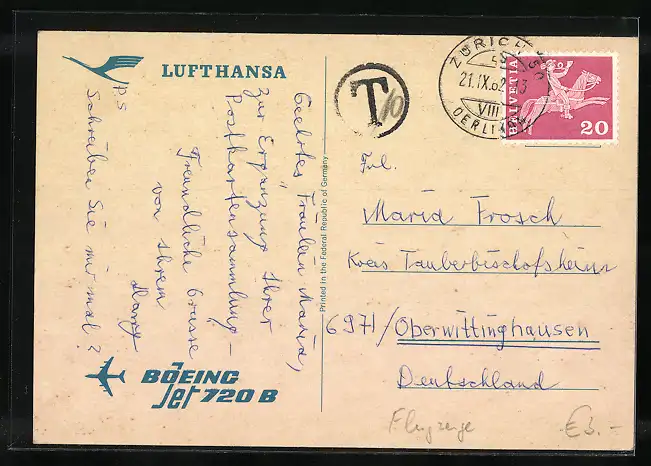 LUFTHANSA
Geehrtes Fräulein Maria,
zur Ergänzung Ihrer
Postkartensammlung -
Freundliche Grüsse
von Ihrem
Harry
PS
Schreiben Sie mir mal?
BOEING
Jet 720 B
Printed in the Federal Republic of Germany
T
10
ZÜRICH
21.IX.62
VIII
OERLIKON
HELVETIA
20
Frl.
Maria Frosch
Kreis Tauberbischofsheim
6971/Oberwittinghausen
Deutschland
Flugzeuge
€3.-